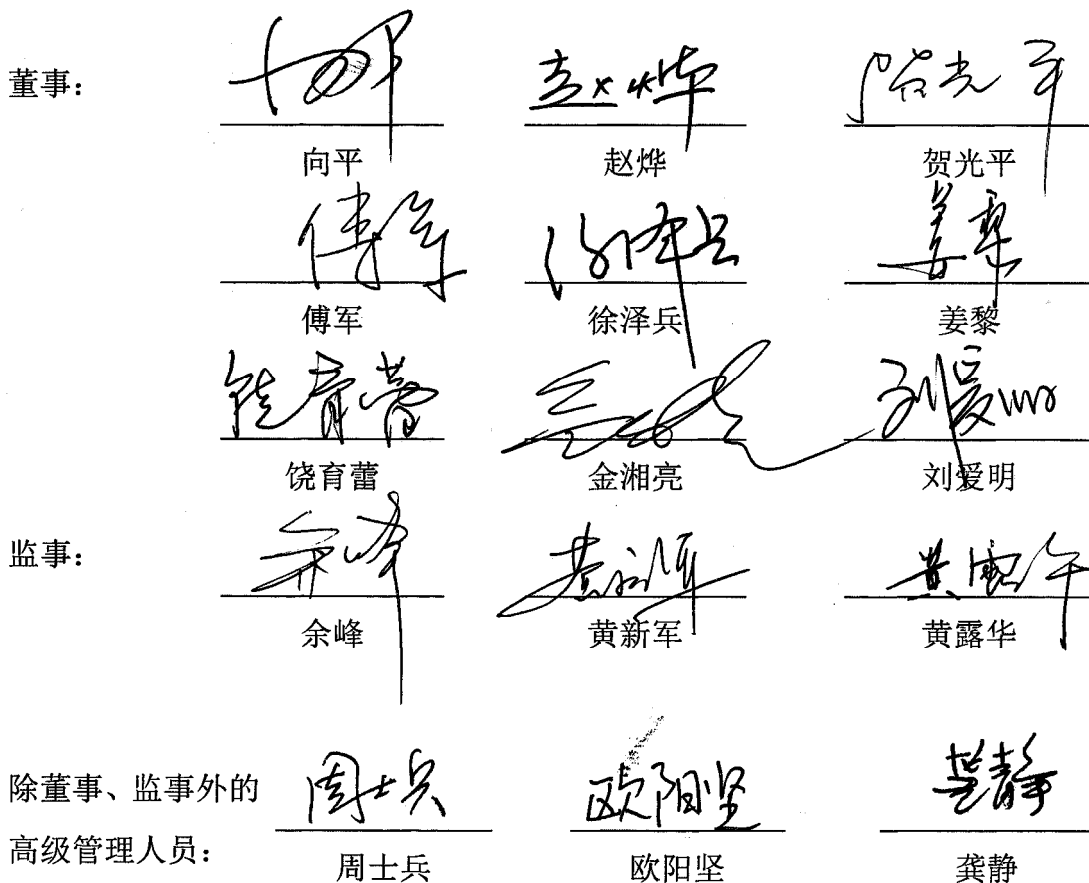 董事：
向平 赵烨 贺光平
傅军 徐泽兵 姜黎
饶育蕾 金湘亮 刘爱明
监事：
余峰 黄新军 黄露华
除董事、监事外的
高级管理人员：
周士兵 欧阳坚 龚静